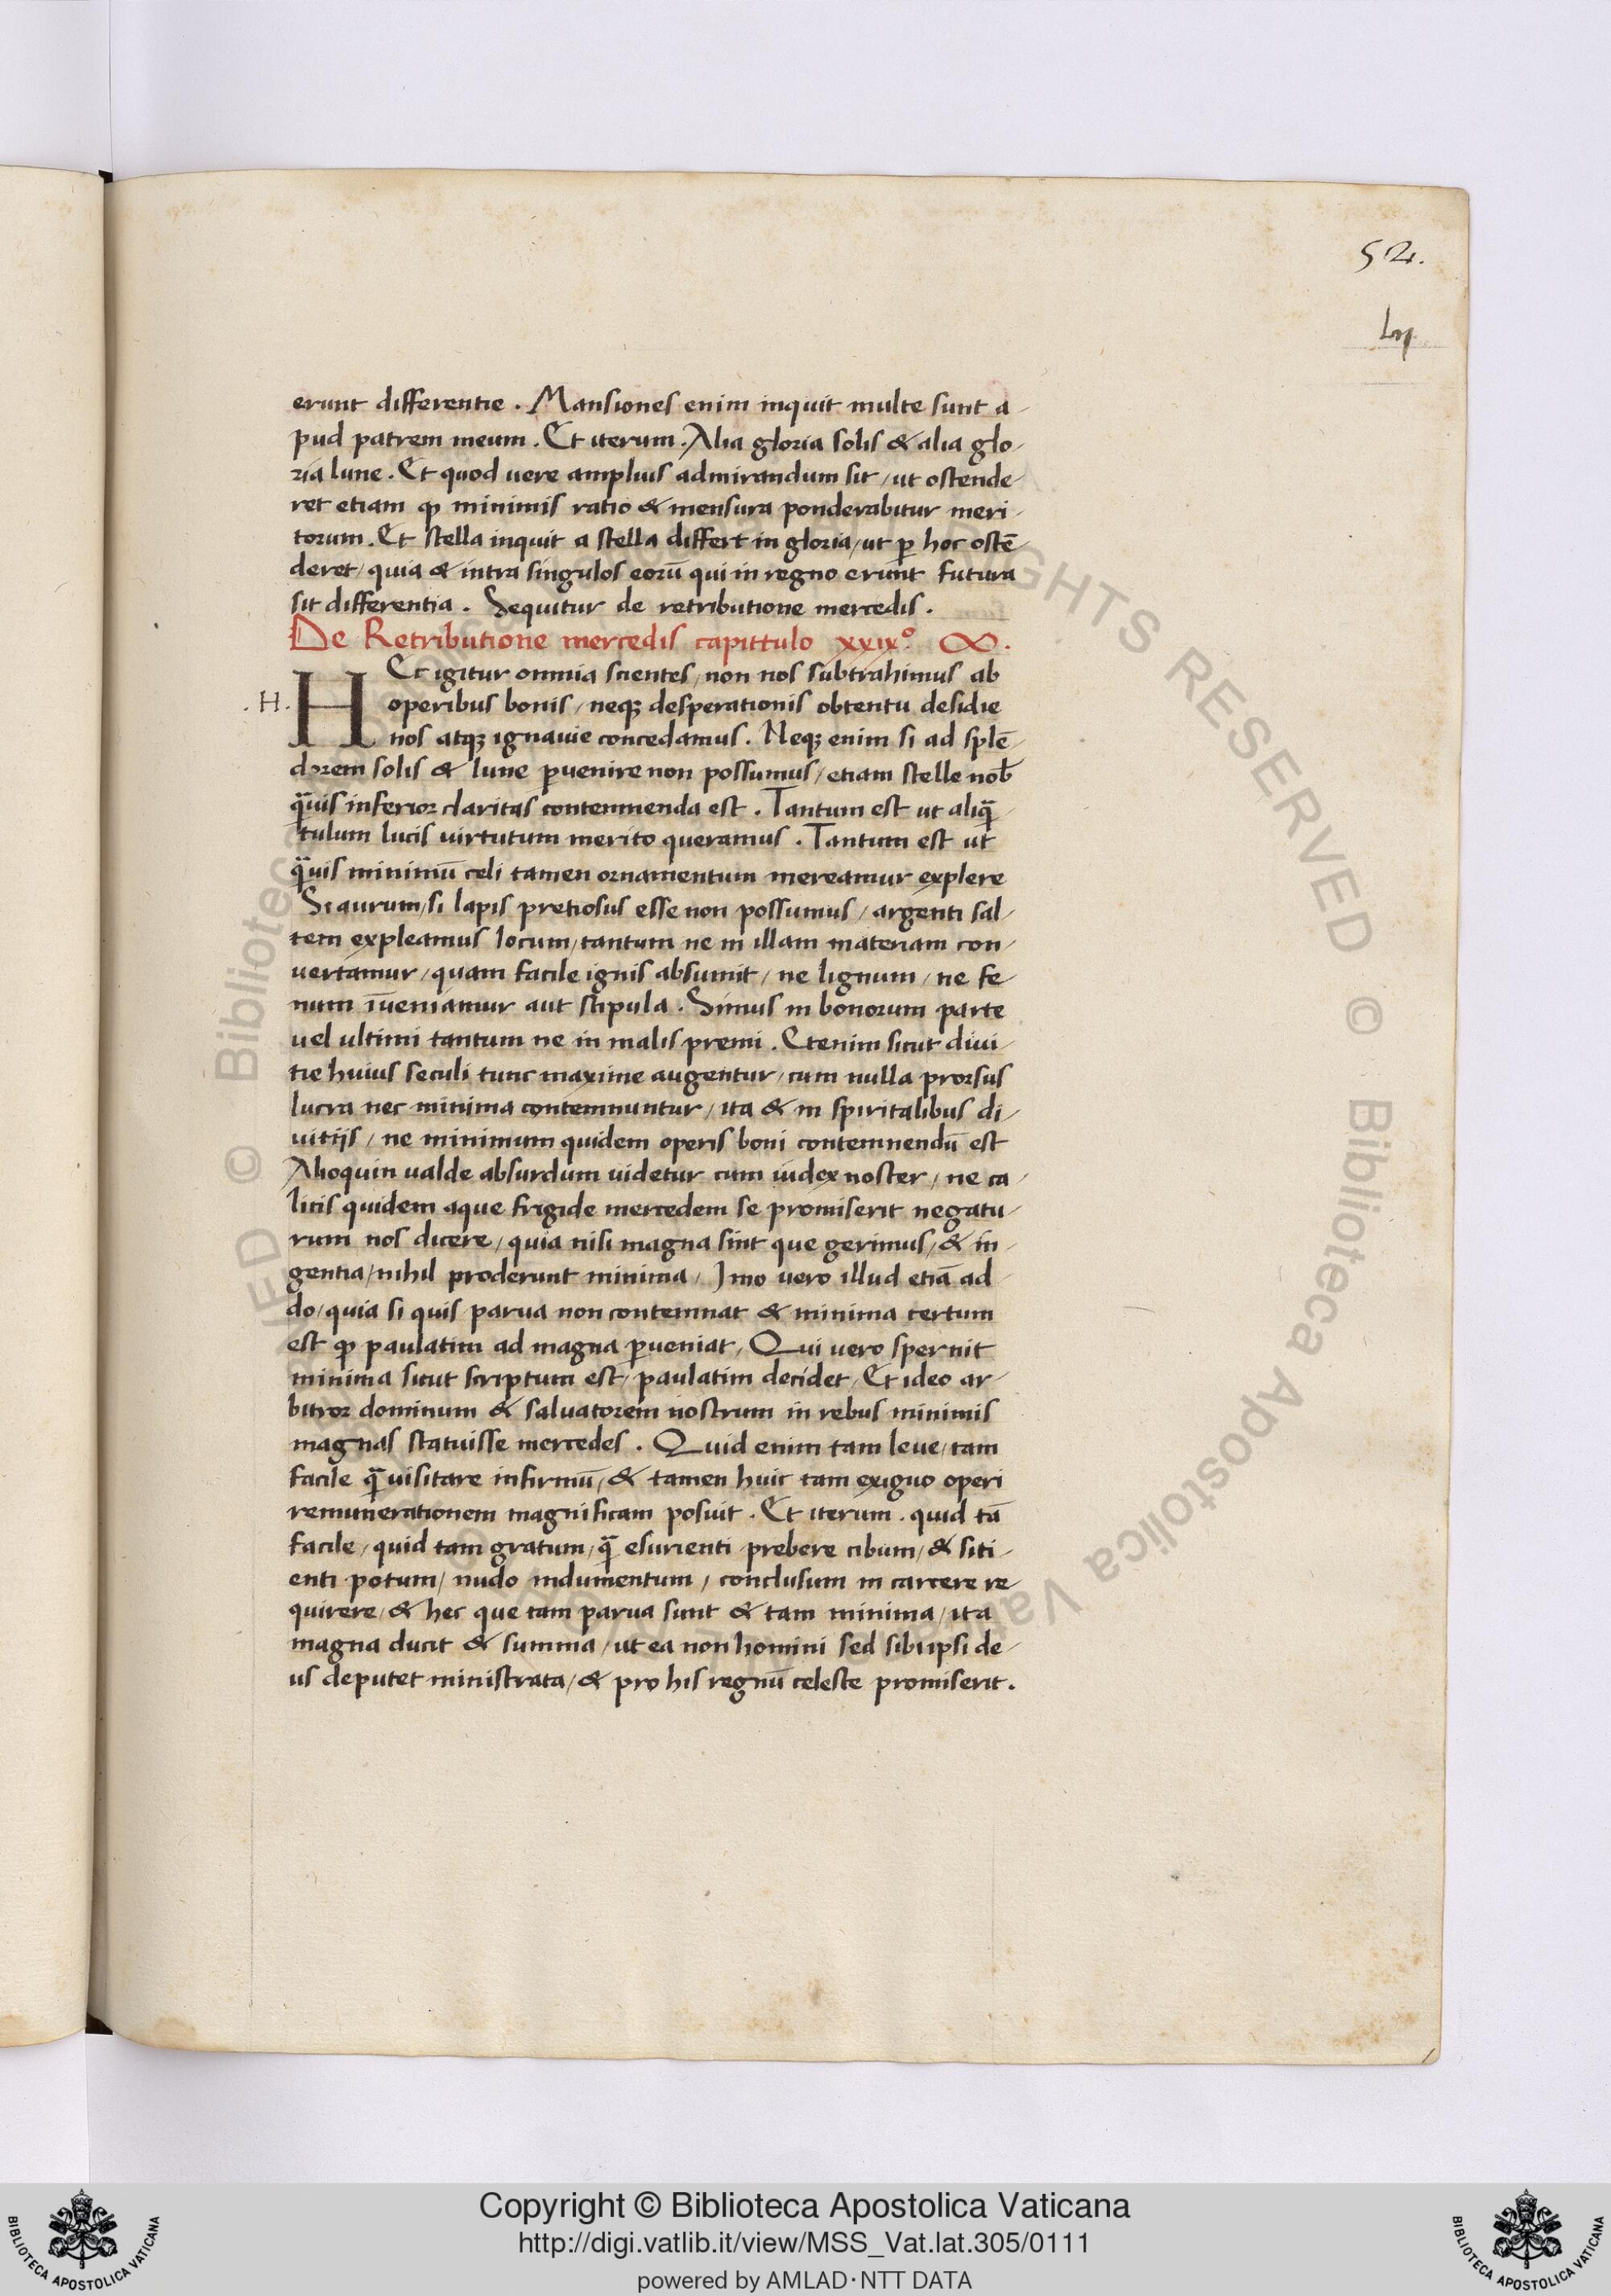 52.
Lij.
erunt differentie . Mansiones enim inquit multe sunt a-
pud patrem meum . Et iterum . Alia gloria solis & alia glo-
ria lune . Et quod uere amplius admirandum sit / ut ostende-
ret etiam ꝙ minimis ratio & mensura ponderabitur meri-
torum . Et stella inquit a stella differt in gloria / ut ꝑ hoc ostē-
deret / quia & intra singulos eorū qui in regno erunt futura
sit differentia . Sequitur de retributione mercedis .
De Retributione mercedis capittulo xxix°.
.H. HEc igitur omnia scientes / non nos subtrahimus ab
operibus bonis / neqꝫ desperationis obtentu desidie
nos atqꝫ ignauie concedamus . Neqꝫ enim si ad splē-
dorem solis & lune ꝑuenire non possumus / etiam stelle nob̄
q̄uis inferior claritas contemnenda est . Tantum est ut aliq̄-
tulum lucis uirtutum merito queramus . Tantum est ut
q̄uis minimū celi tamen ornamentum mereamur explere
Si aurum / si lapis pretiosus esse non possumus / argenti sal-
tem expleamus locum / tantum ne in illam materiam con-
uertamur / quam facile ignis absumit / ne lignum / ne fe-
num īueniamur aut stipula . Simus in bonorum parte
uel ultimi tantum ne in malis premi . Etenim sicut diui-
tie huius seculi tunc maxime augentur / cum nulla prorsus
lucra nec minima contemnuntur / ita & in spiritalibus di-
uitijs / ne minimum quidem operis boni contemnendū est
Alioquin ualde absurdum uidetur cum iudex noster / ne ca-
licis quidem aque frigide mercedem se promiserit negatu-
rum nos dicere / quia nisi magna sint que gerimus / & in-
gentia / nihil proderunt minima / Imo uero illud etiā ad-
do / quia si quis parua non contemnat & minima certum
est ꝙ paulatim ad magna ꝑueniat / Qui uero spernit
minima sicut scriptum est / paulatim decidet / Et ideo ar-
bitror dominum & saluatorem nostrum in rebus minimis
magnas statuisse mercedes . Quid enim tam leue / tam
facile q̄ uisitare infirmū / & tamen huic tam exiguo operi
remunerationem magnificam posuit . Et iterum . quid tā
facile / quid tam gratum / q̄ esurienti prebere cibum / & siti-
enti potum / nudo indumentum / conclusum in carcere re-
quirere / & hec que tam parua sunt & tam minima / ita
magna ducit & summa / ut ea non homini sed sibi ipsi de-
us deputet ministrata / & pro his regnū celeste promiserit .
ALL RIGHTS RESERVED © Biblioteca Apostolica Vaticana
Copyright © Biblioteca Apostolica Vaticana
http://digi.vatlib.it/view/MSS_Vat.lat.305/0111
powered by AMLAD·NTT DATA
BIBLIOTECA APOSTOLICA VATICANA
BIBLIOTECA APOSTOLICA VATICANA